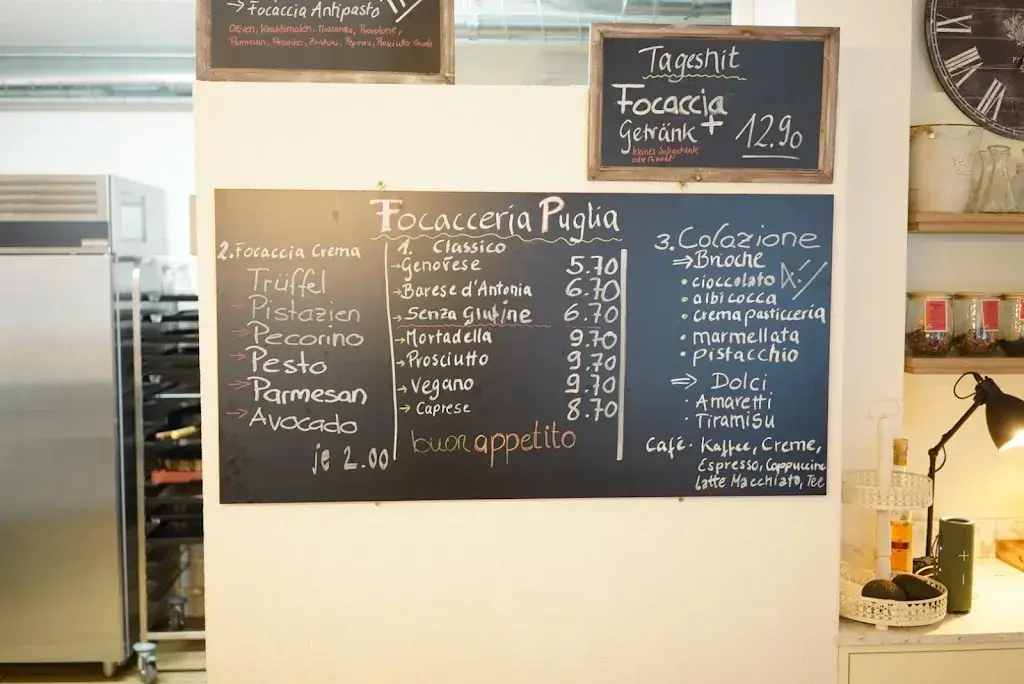 → Focaccia Antipasto
Oliven, Kirschtomaten, Mozzarella, Provolone,
Parmesan, Pecorino, Zucchini, Peperoni, Prosciutto Crudo
Tageshit
Focaccia
+
Getränk
12.90
kleines Softgetränk
oder Mineral
Focacceria Puglia
2. Focaccia Crema
Trüffel
→ Pistazien
→ Pecorino
→ Pesto
→ Parmesan
→ Avocado
je 2.00
1. Classico
→ Genovese 5.70
→ Barese d'Antonia 6.70
→ Senza Glutine 6.70
→ Mortadella 9.70
→ Prosciutto 9.70
→ Vegano 9.70
→ Caprese 8.70
buon appetito
3. Colazione
⇒ Brioche
• cioccolato
• albicocca
• crema pasticceria
• marmellata
• pistacchio
⇒ Dolci
· Amaretti
· Tiramisu
Café · Kaffee, Creme,
Espresso, Cappuccino
Latte Macchiato, Tee